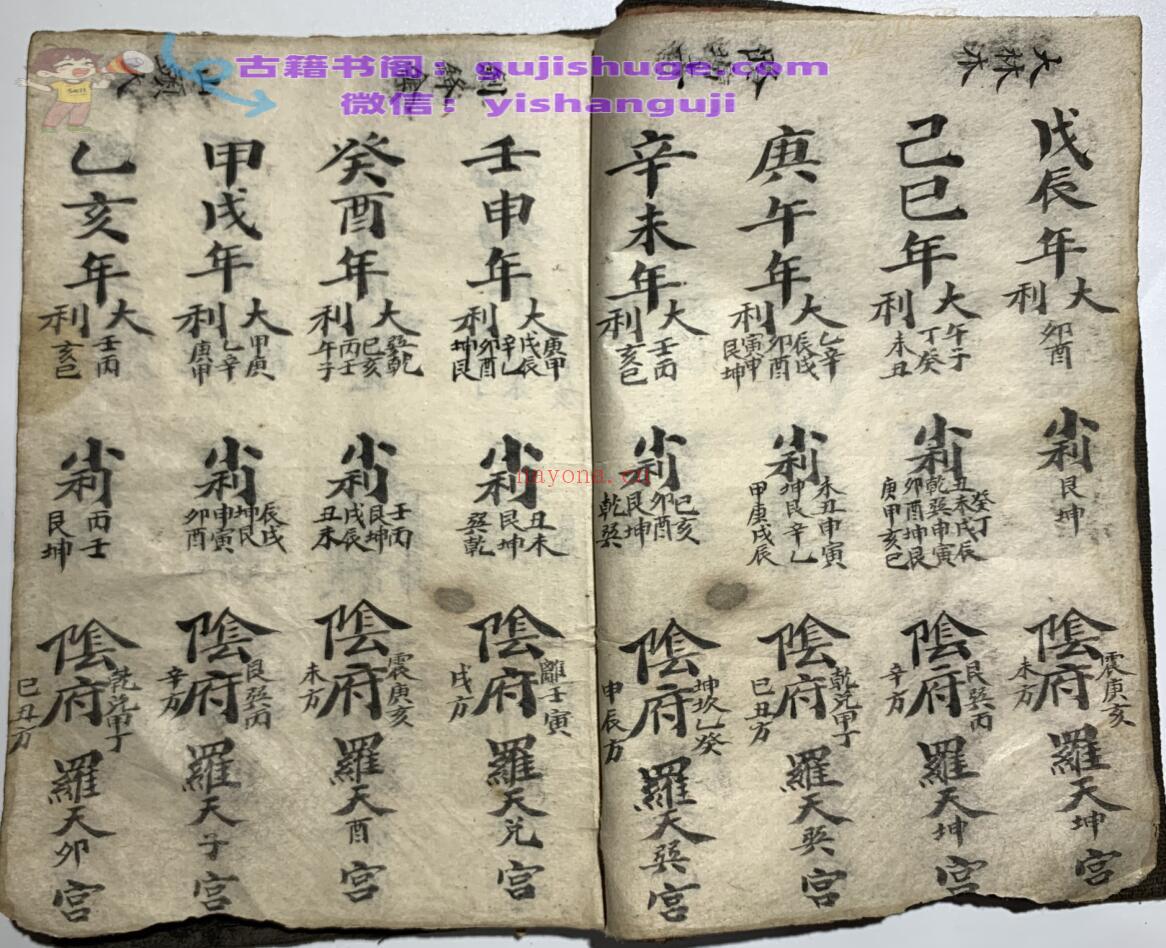 古籍书阁：gujishuge.com
微信：yishanguji
nayona.cn
大林木
戊辰年
大利
卯酉
小利
艮坤
陰府
震庚亥
未方
羅天坤宮
己巳年
大利
午子
丁癸
未丑
小利
癸丁
丑未戌辰
乾巽申寅
卯酉坤艮
庚甲亥巳
陰府
艮巽丙
辛方
羅天坤宮
庚午年
大利
乙辛
辰戌
卯酉
寅申
艮坤
小利
未丑申寅
坤艮辛乙
甲庚戌辰
陰府
乾兌甲丁
巳丑方
羅天巽宮
辛未年
大利
壬丙
亥巳
小利
巳亥
卯酉
艮坤
乾巽
陰府
坤坎乙癸
申辰方
羅天巽宮
劍鋒金
壬申年
大利
庚甲
戌辰
辛乙
卯酉
坤艮
小利
丑未
艮坤
巽乾
陰府
離壬寅
戌方
羅天兌宮
癸酉年
大利
巽乾
巳亥
丙壬
午子
小利
壬丙
艮坤
戌辰
丑未
陰府
震庚亥
未方
羅天酉宮
甲戌年
大利
甲庚
乙辛
庚甲
小利
辰戌
坤艮
申寅
卯酉
陰府
艮巽丙
辛方
羅天子宮
乙亥年
大利
壬丙
亥巳
小利
丙壬
艮坤
陰府
乾兌甲丁
巳丑方
羅天卯宮